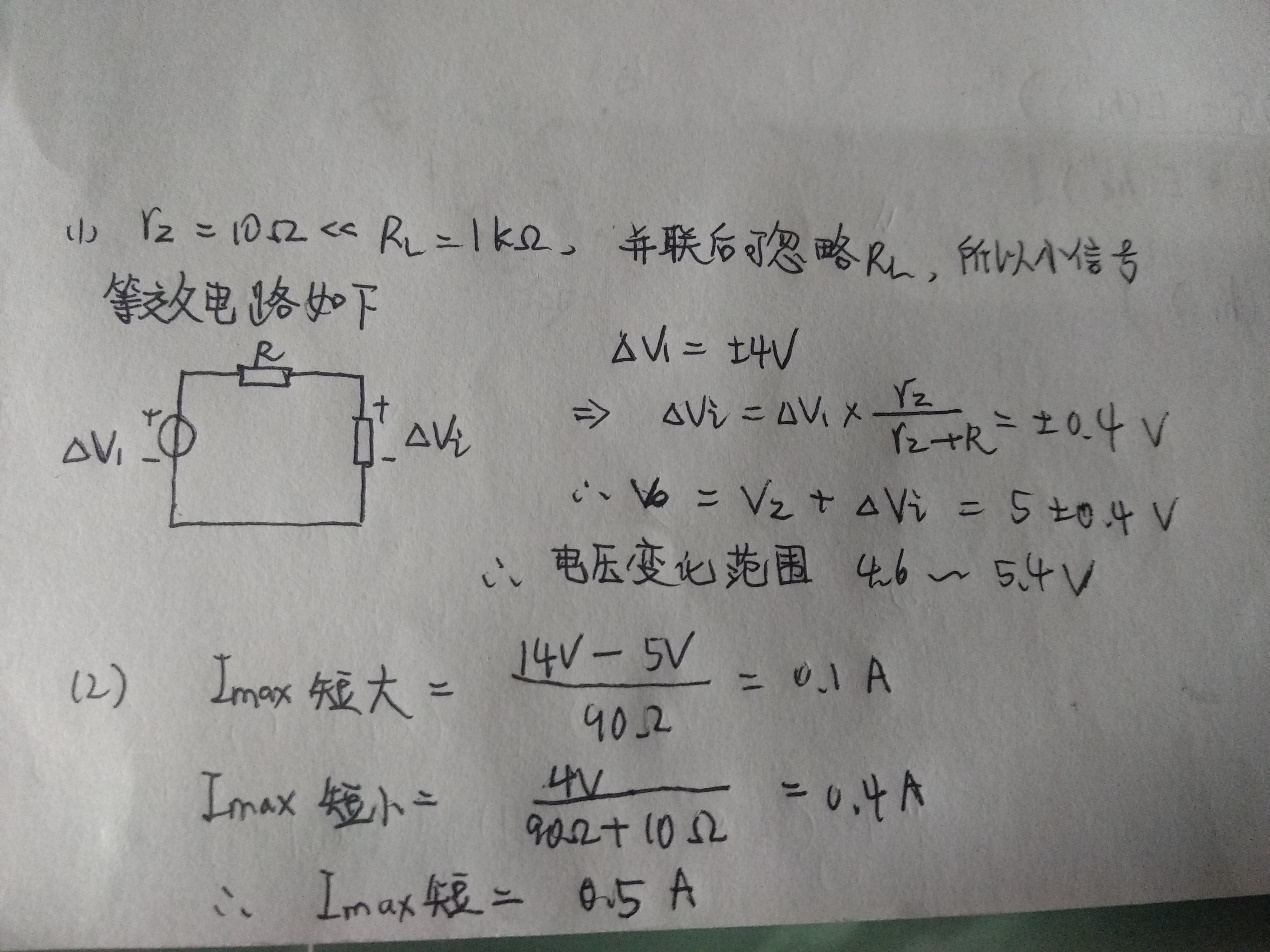 (1) r₂ = 10Ω << R_L = 1kΩ, 并联后可忽略R_L, 所以小信号
等效电路如下
R
ΔV₁ + - + - ΔVi
ΔV₁ = ±4V
⇒ ΔVi = ΔV₁ × r₂/(r₂+R) = ±0.4 V
∴ Vo = V₂ + ΔVi = 5 ±0.4 V
∴ 电压变化范围 4.6 ~ 5.4V
(2) Imax短大 = (14V - 5V)/90Ω = 0.1 A
Imax短小 = 4V/(90Ω + 10Ω) = 0.4 A
∴ Imax短 = 0.5 A